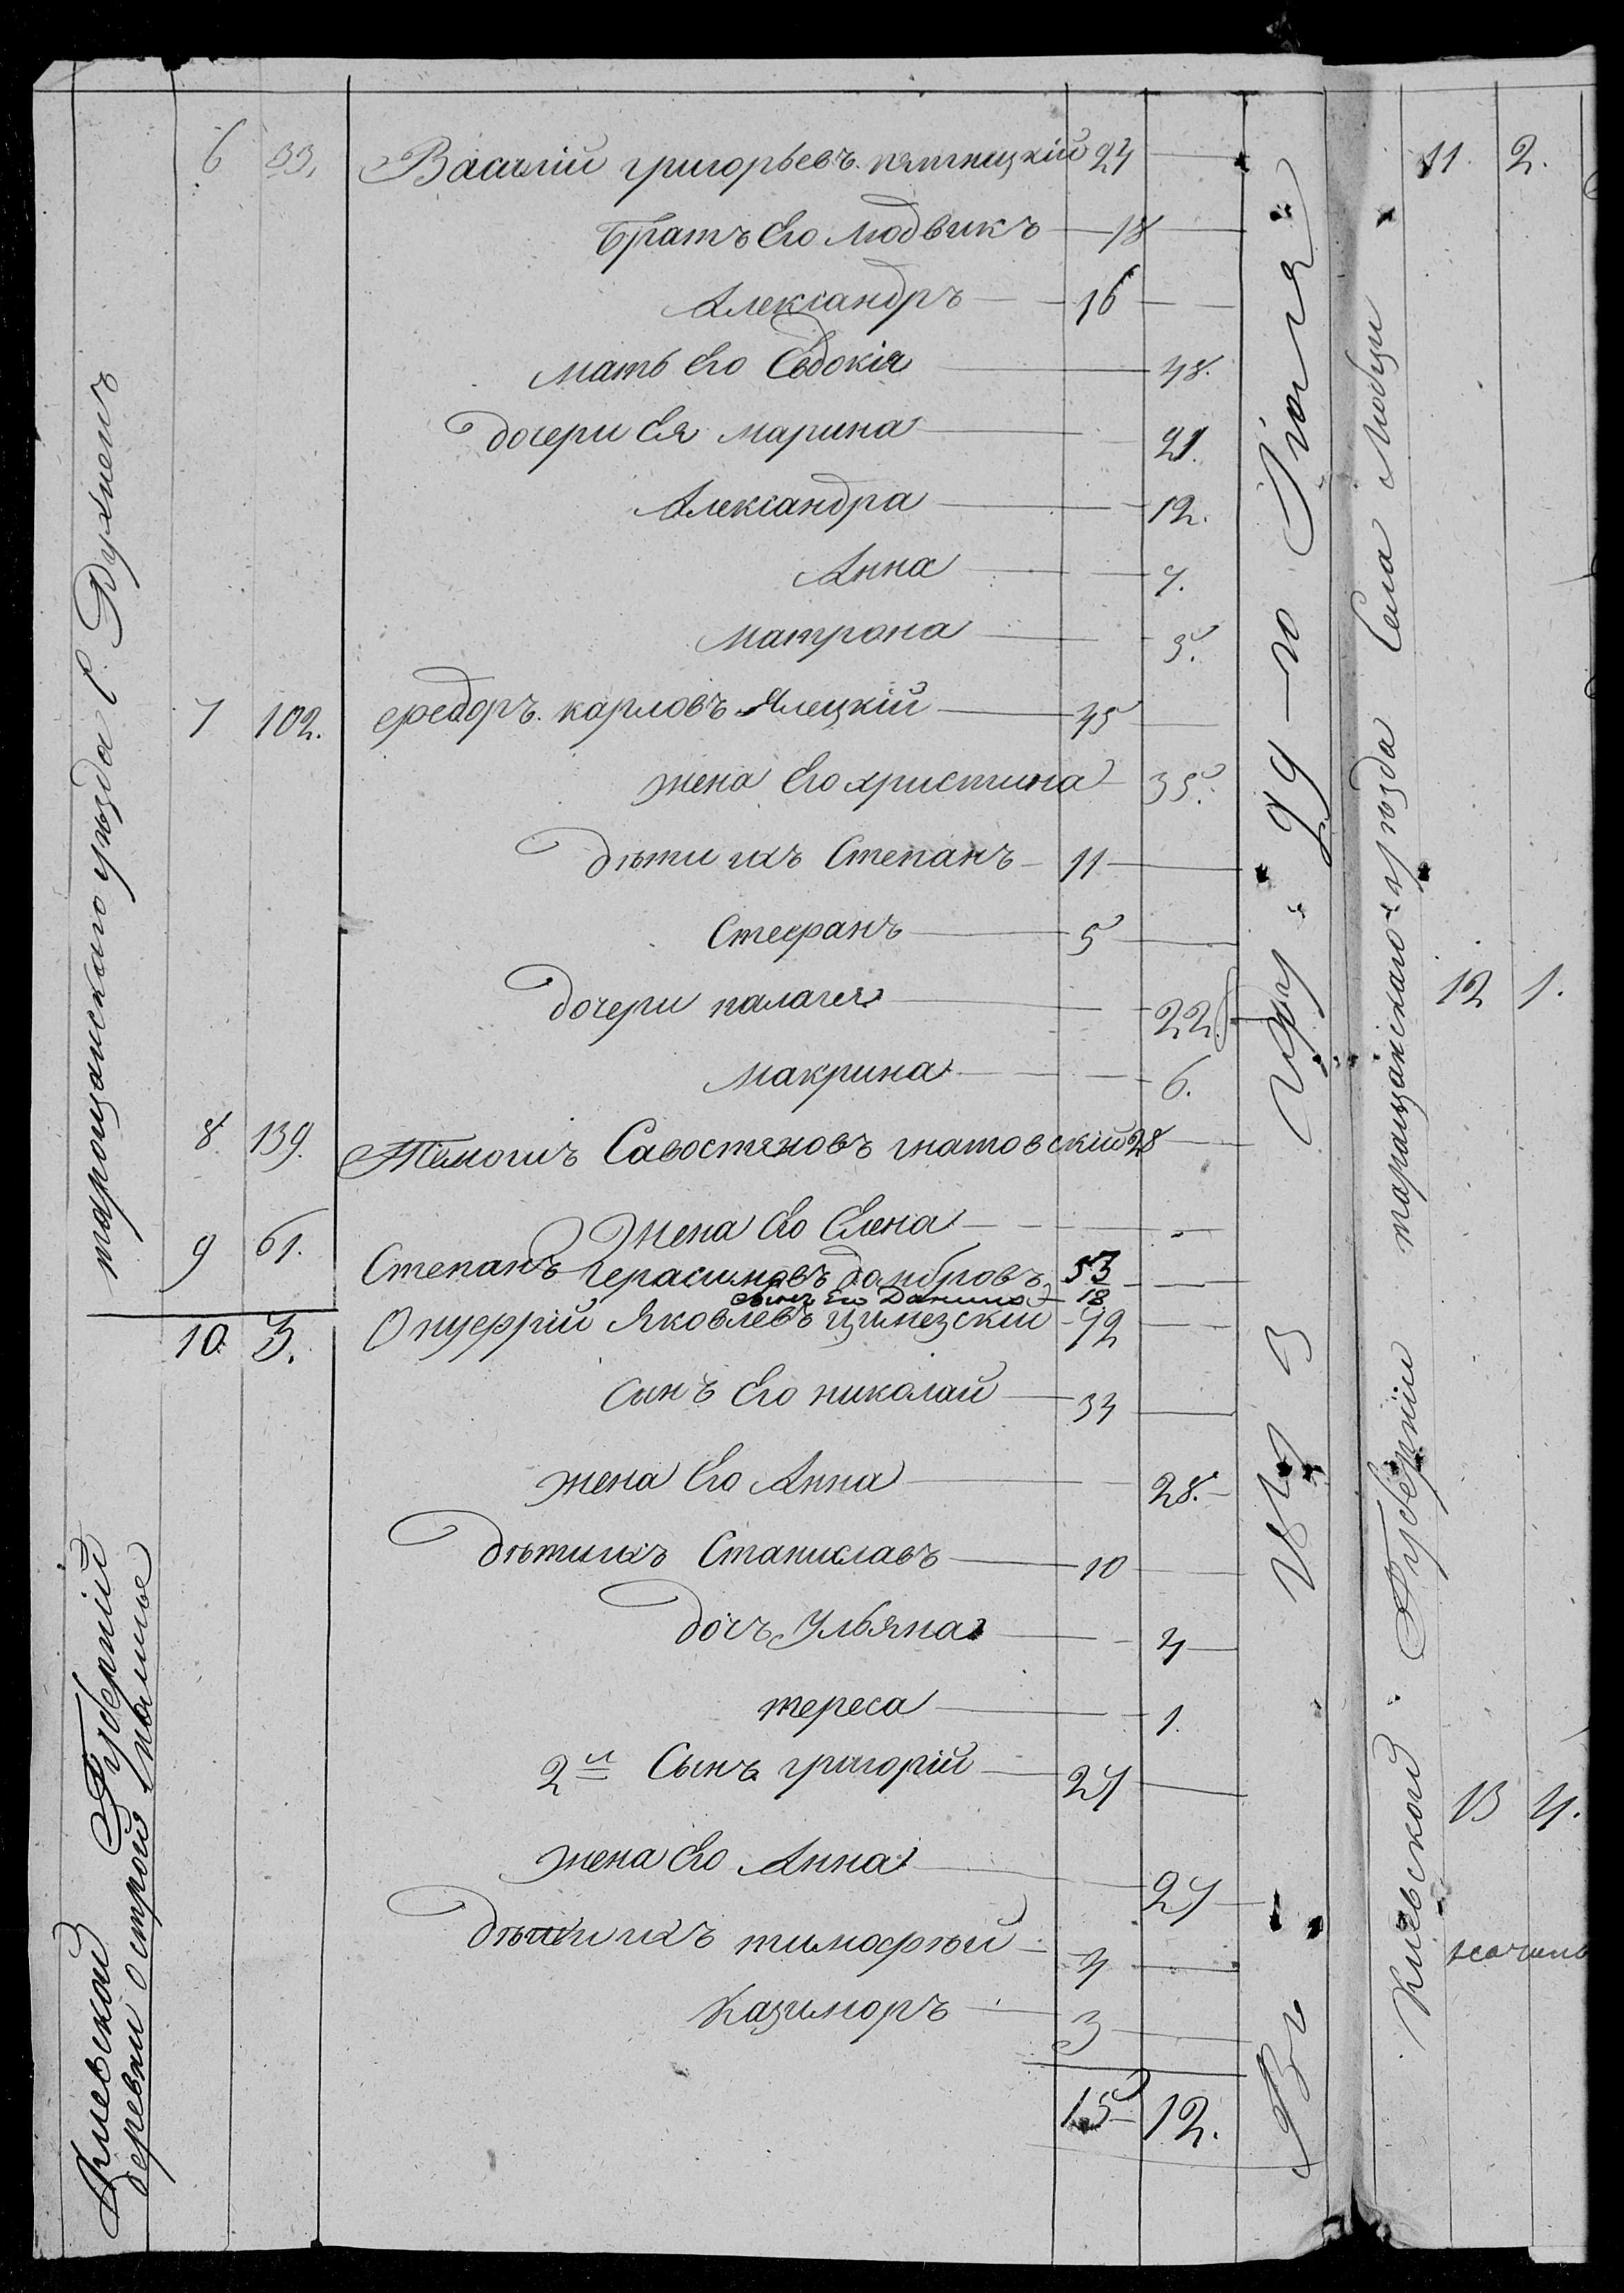 6 33. Василій григорьевъ пятницкій 24
Братъ Его людвикъ 18
Александръ 16
мать Его Евдокія 48.
дочери Ея марина 21.
Александра 12.
Анна 7.
матрона 5.
7 102. федоръ карловъ Ялецкій 45
жена Его христина 35.
дѣти ихъ Степанъ 11
Стефанъ 5
дочери палагея 22.
макрина 6.
8. 139. Савостяновъ гнатовскій 28
Жена Его Елена
9 61. Степанъ Герасимовъ домбровъ 53
сынъ Его Данило 18
10. 3. Онуфрій Яковлевъ 72
сынъ Его николай 34
жена Его Анна 28.
дѣти ихъ Станиславъ 10
дочъ Ульяна 4
тереса 1.
2й Сынъ григорій 27
жена Его Анна 27
дѣти ихъ тимофѣй 4
Казиморъ 3
15 12.
таращанскаго уѣзда С.
Киевской Губерніи
деревни острой
Въ
11. 2.
12 1.
13 4.
Киевской Губерніи таращанскаго уѣзда Села